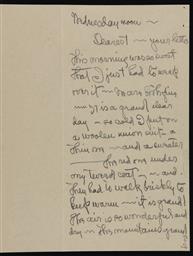 Wednesday noon ~
Dearest — your letter
this morning was so sweet
that I just had to weep
over it —
is a grand clear
day — so cold I put on
a woolen union suit a
thin — and a sweater
— this red one under
my tweed coat — and
they had to walk briskly to
keep warm — it is grand!
this air is so wonderful and
dry — this mountain grand